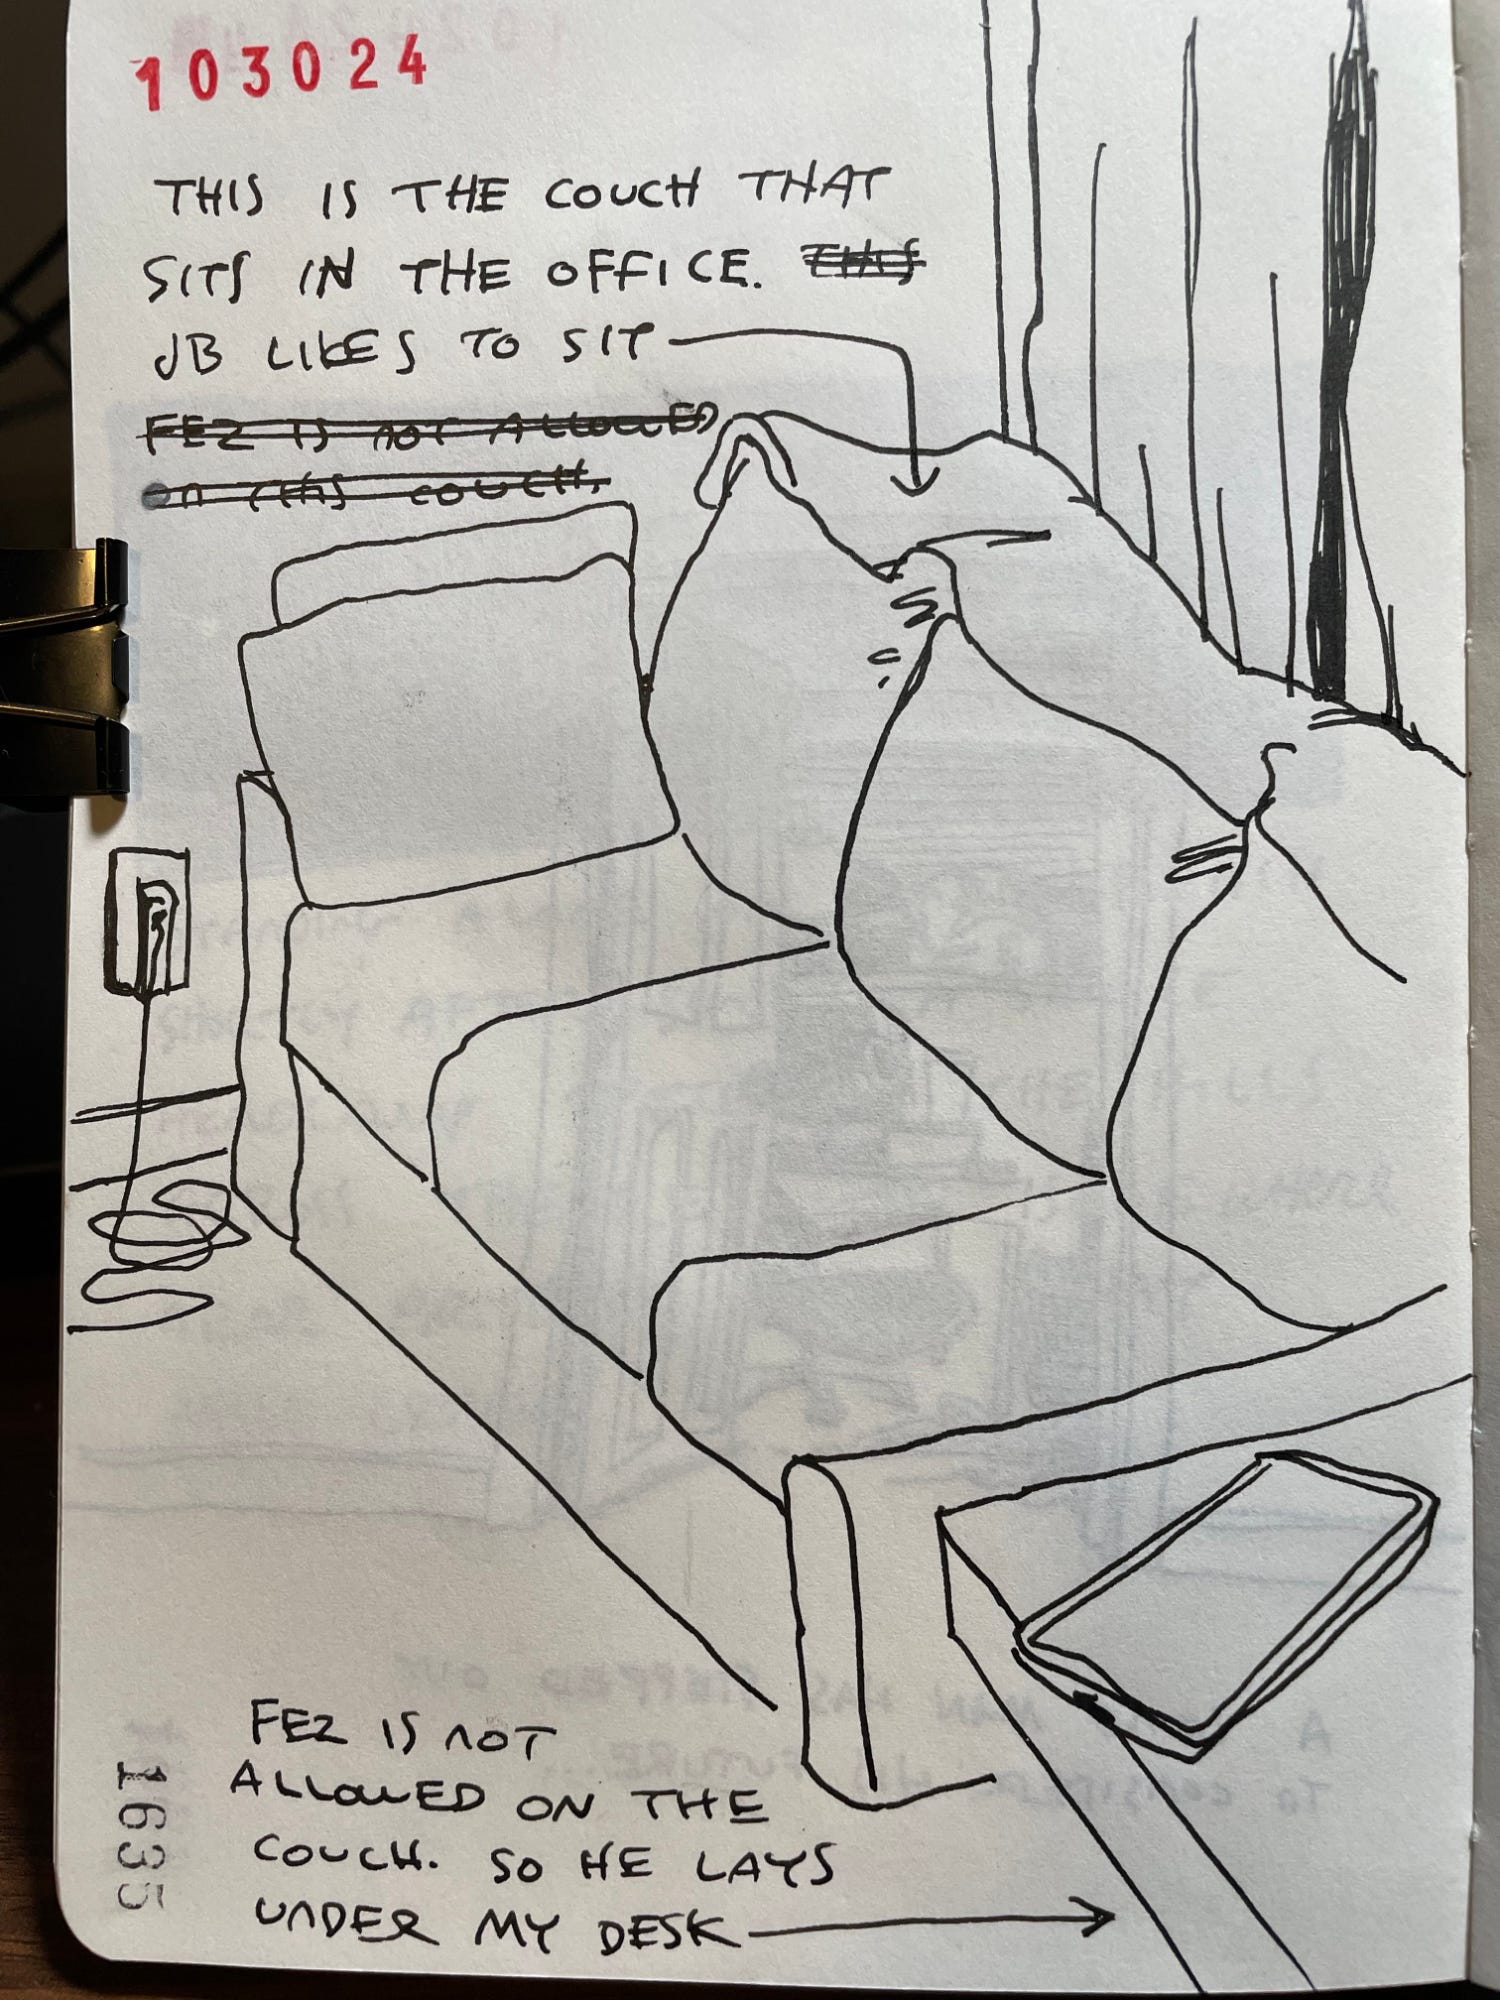 103024
THIS IS THE COUCH THAT
SITS IN THE OFFICE. THIS
JB LIKES TO SIT
FEZ IS NOT ALLOWED
ON THIS COUCH.
FEZ IS NOT
ALLOWED ON THE
COUCH. SO HE LAYS
UNDER MY DESK
1635